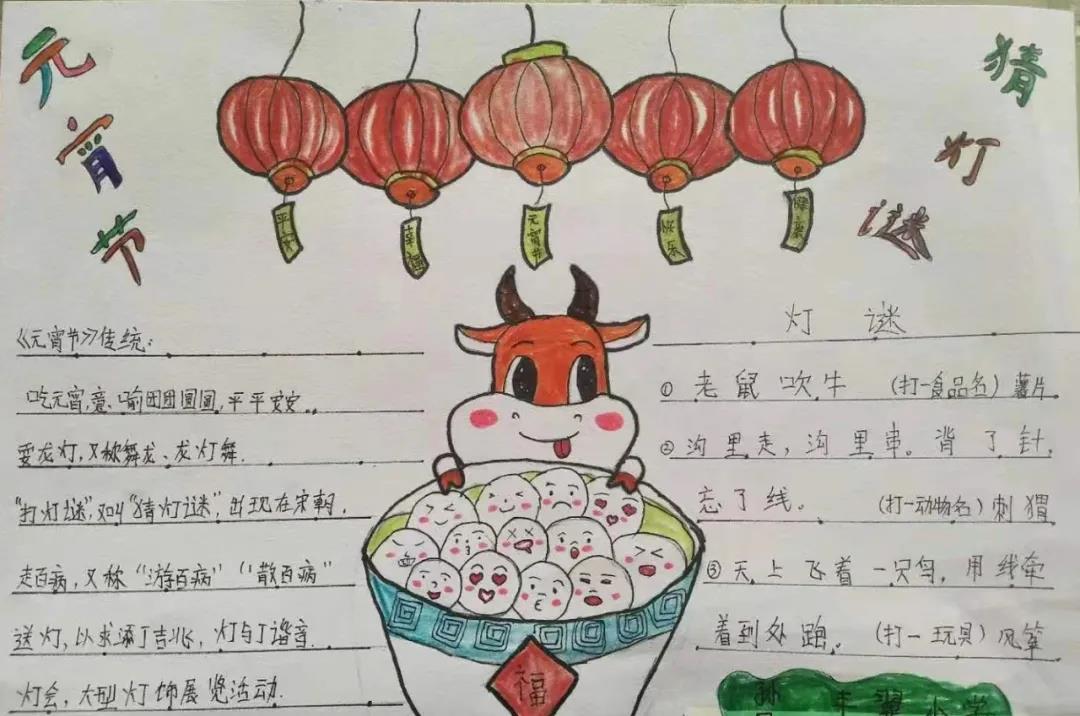 元宵节
猜灯谜
平安
幸福
元宵节
快乐
健康
《元宵节》传统:
吃元宵,意、喻团团圆圆,平平安安。
耍龙灯,又称舞龙、龙灯舞.
"打灯谜",又叫"猜灯谜",出现在宋朝.
走百病,又称"游百病""散百病"
送灯,以求添丁吉兆,灯与丁谐音.
灯会,大型灯饰展览活动.
福
灯谜
①老鼠吹牛 (打一食品名)薯片.
②沟里走,沟里串。背了针
忘了线。 (打一动物名)刺猬
③天上飞着一只鸟,用线牵
着到处跑。(打一玩具)风筝
小学